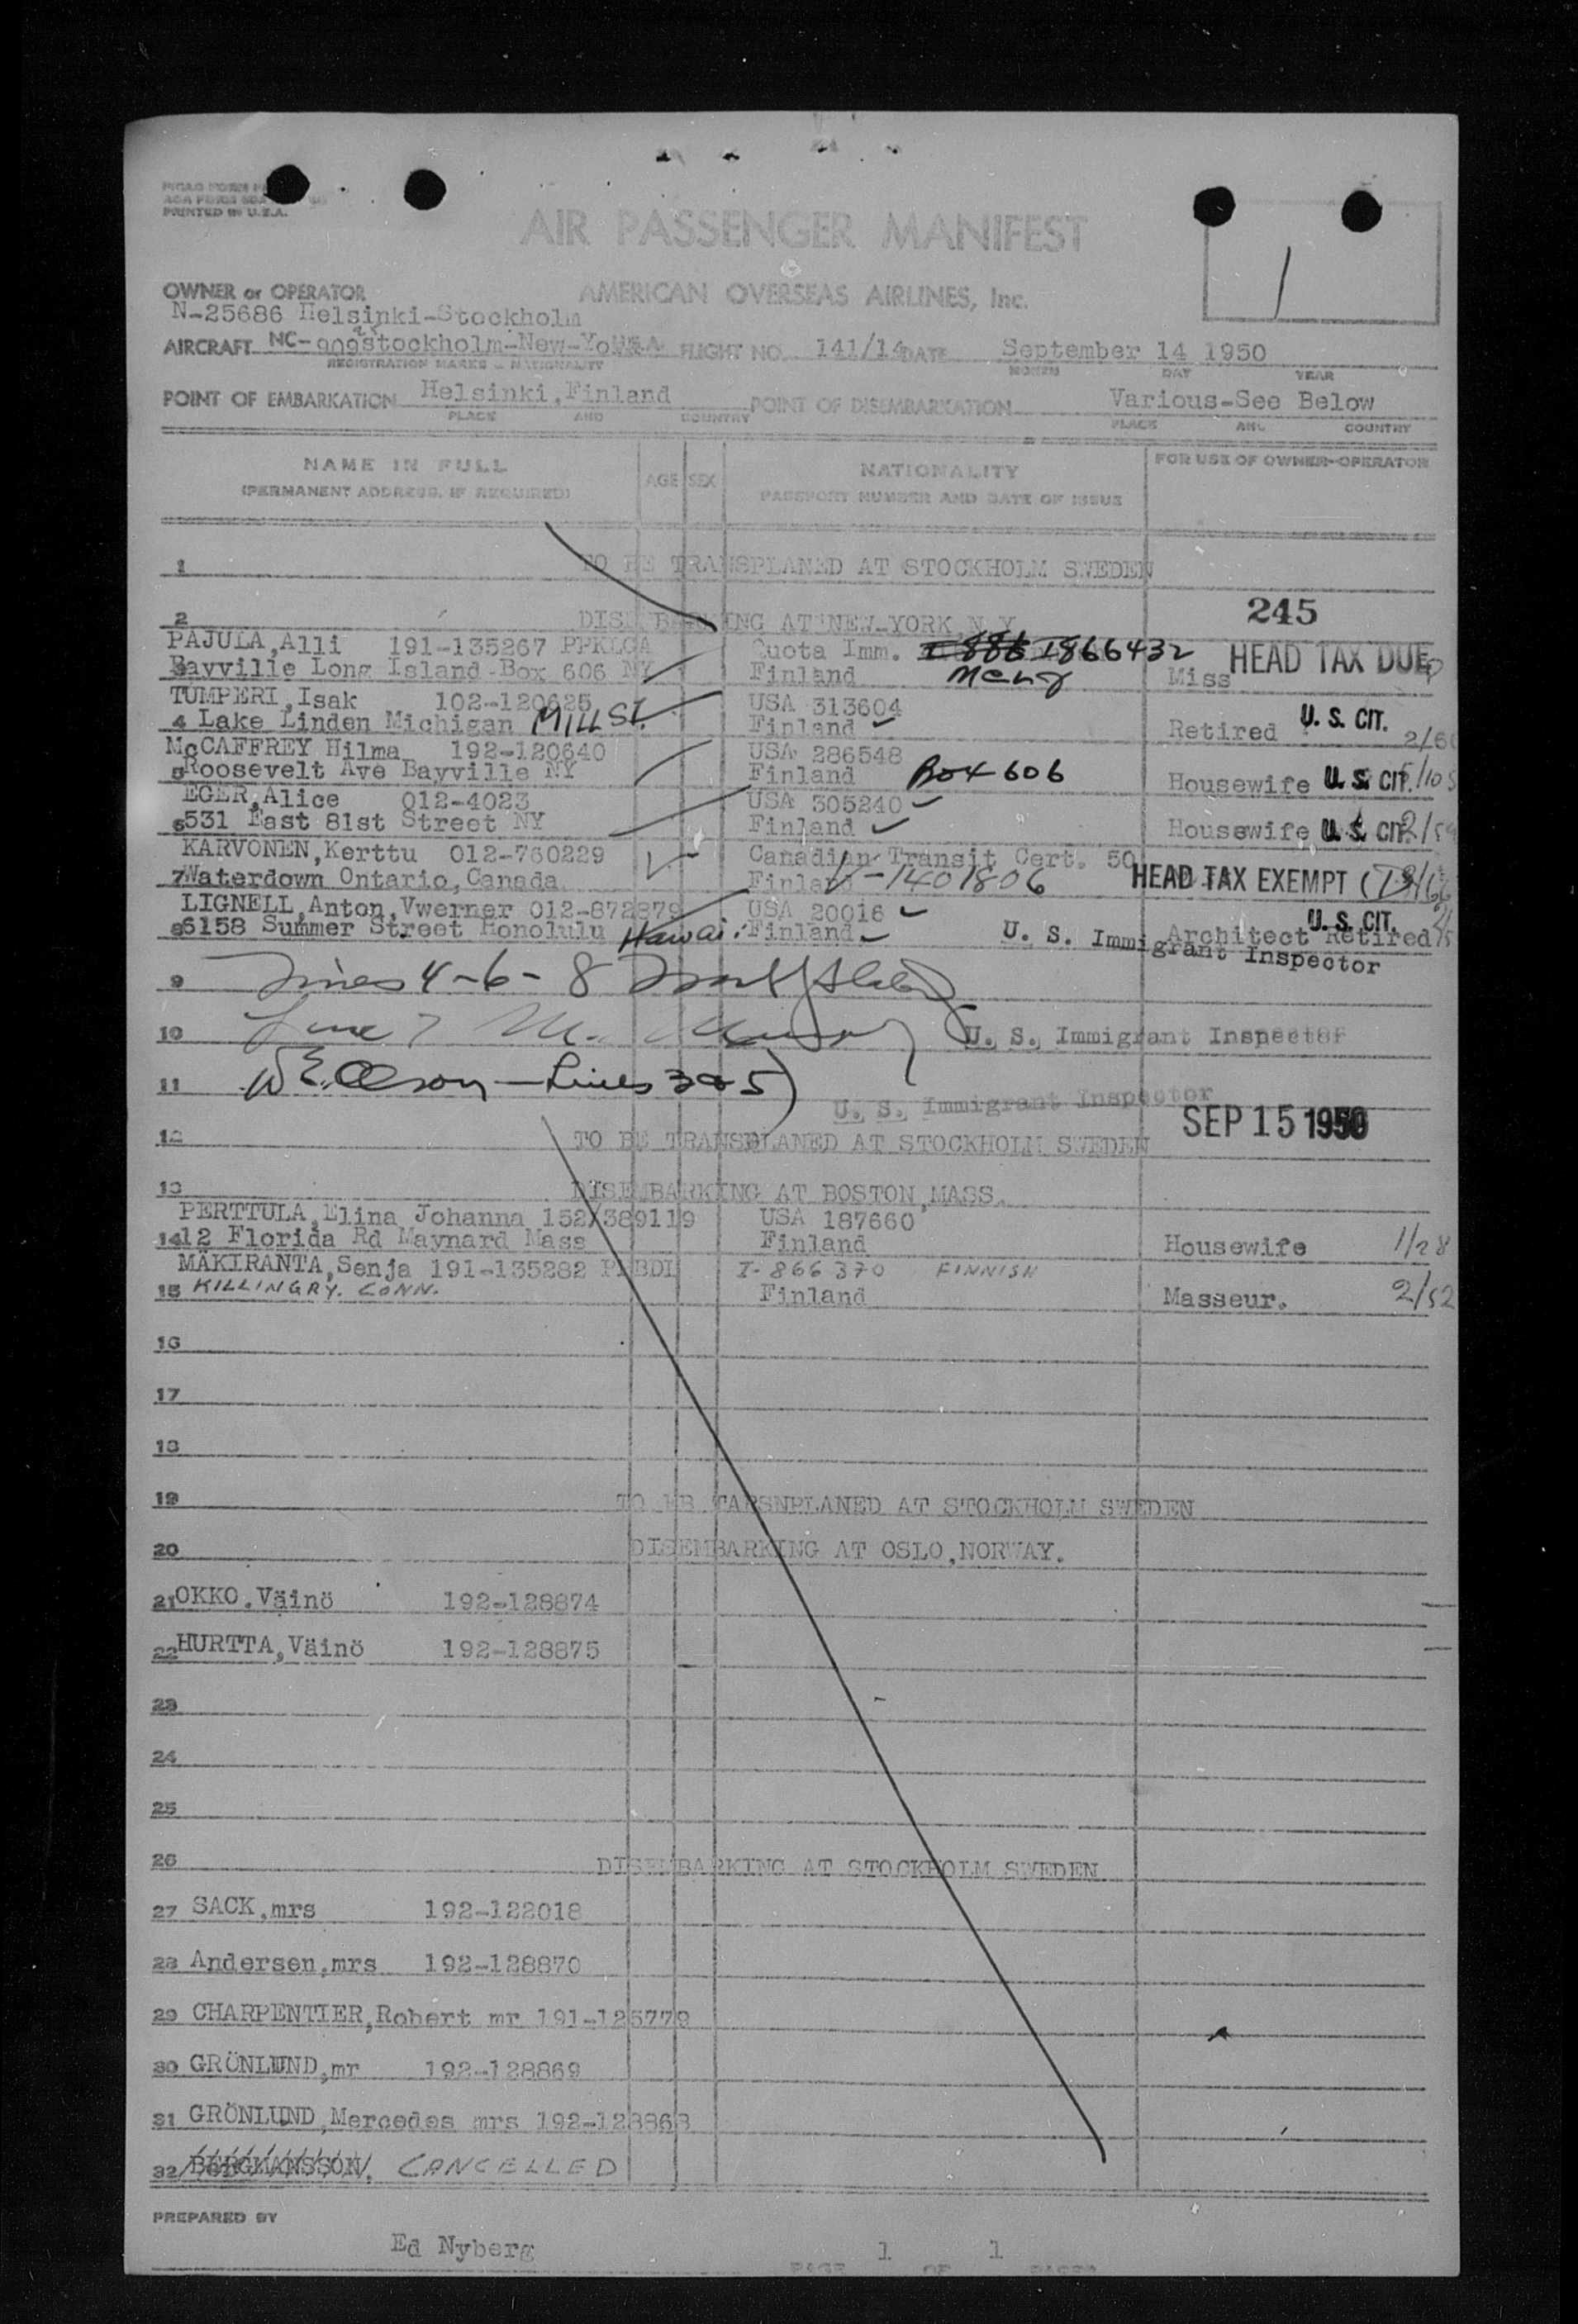 PRINTED IN U.S.A.
AIR PASSENGER MANIFEST
OWNER or OPERATOR AMERICAN OVERSEAS AIRLINES, Inc.
N-25686 Helsinki-Stockholm
AIRCRAFT NC- Stockholm-New-Yo U.S.A. FLIGHT NO. 141/14 DATE September 14 1950
REGISTRATION MARKS - NATIONALITY MONTH DAY YEAR
POINT OF EMBARKATION Helsinki,Finland POINT OF DISEMBARKATION Various-See Below
PLACE AND COUNTRY PLACE AND COUNTRY
NAME IN FULL AGE SEX NATIONALITY FOR USE OF OWNER-OPERATOR
(PERMANENT ADDRESS, IF REQUIRED) PASSPORT NUMBER AND DATE OF ISSUE
1 TO BE TRANSPLANED AT STOCKHOLM SWEDEN
2 DISEMBARKING AT NEW-YORK,N.Y. 245
PAJULA,Alli 191-135267 PPKLCA Quota Imm. I866432 HEAD TAX DUE
Bayville Long Island-Box 606 NY Finland Miss
TUMPERI,Isak 102-120625 USA 313604
4 Lake Linden Michigan MILL St. Finland Retired U. S. CIT.
McCAFFREY Hilma 192-120640 USA 286548
5 Roosevelt Ave Bayville NY Finland Box 606 Housewife U. S. CIT.
EGER,Alice 012-4023 USA 305240
6 531 East 81st Street NY Finland Housewife U. S. CIT.
KARVONEN,Kerttu 012-760229 Canadian Transit Cert. 50
7 Waterdown Ontario,Canada Finland V-1401806 HEAD TAX EXEMPT
LIGNELL,Anton,Vwerner 012-872879 USA 20016 U. S. CIT.
8 6158 Summer Street Honolulu Hawai: Finland Architect Retired
U. S. Immigrant Inspector
9 Lines 4-6-8
10 Line 7 M. U. S. Immigrant Inspector
11 W E. Olson - Lines 3&5)
U. S. Immigrant Inspector
SEP 15 1950
12 TO BE TRANSPLANED AT STOCKHOLM SWEDEN
13 DISEMBARKING AT BOSTON,MASS.
PERTTULA,Elina Johanna 152/389119 USA 187660
14 12 Florida Rd Maynard Mass Finland Housewife 1/28
MÄKIRANTA,Senja 191-135282 I-866370 FINNISH
15 KILLINGRY. CONN. Finland Masseur. 2/52
16
17
18
19 TO EB TARSNPLANED AT STOCKHOLM SWEDEN
20 DISEMBARKING AT OSLO,NORWAY.
21 OKKO.Väinö 192-128874
22 HURTTA,Väinö 192-128875
23
24
25
26 DISEMBARKING AT STOCKHOLM SWEDEN
27 SACK,mrs 192-122018
28 Andersen,mrs 192-128870
29 CHARPENTIER,Robert mr 191-125779
30 GRÖNLUND,mr 192-128869
31 GRÖNLUND,Mercedes mrs 192-128868
32 BERGMANSSON. CANCELLED
PREPARED BY
Ed Nyberg 1 1
PAGE OF PAGES